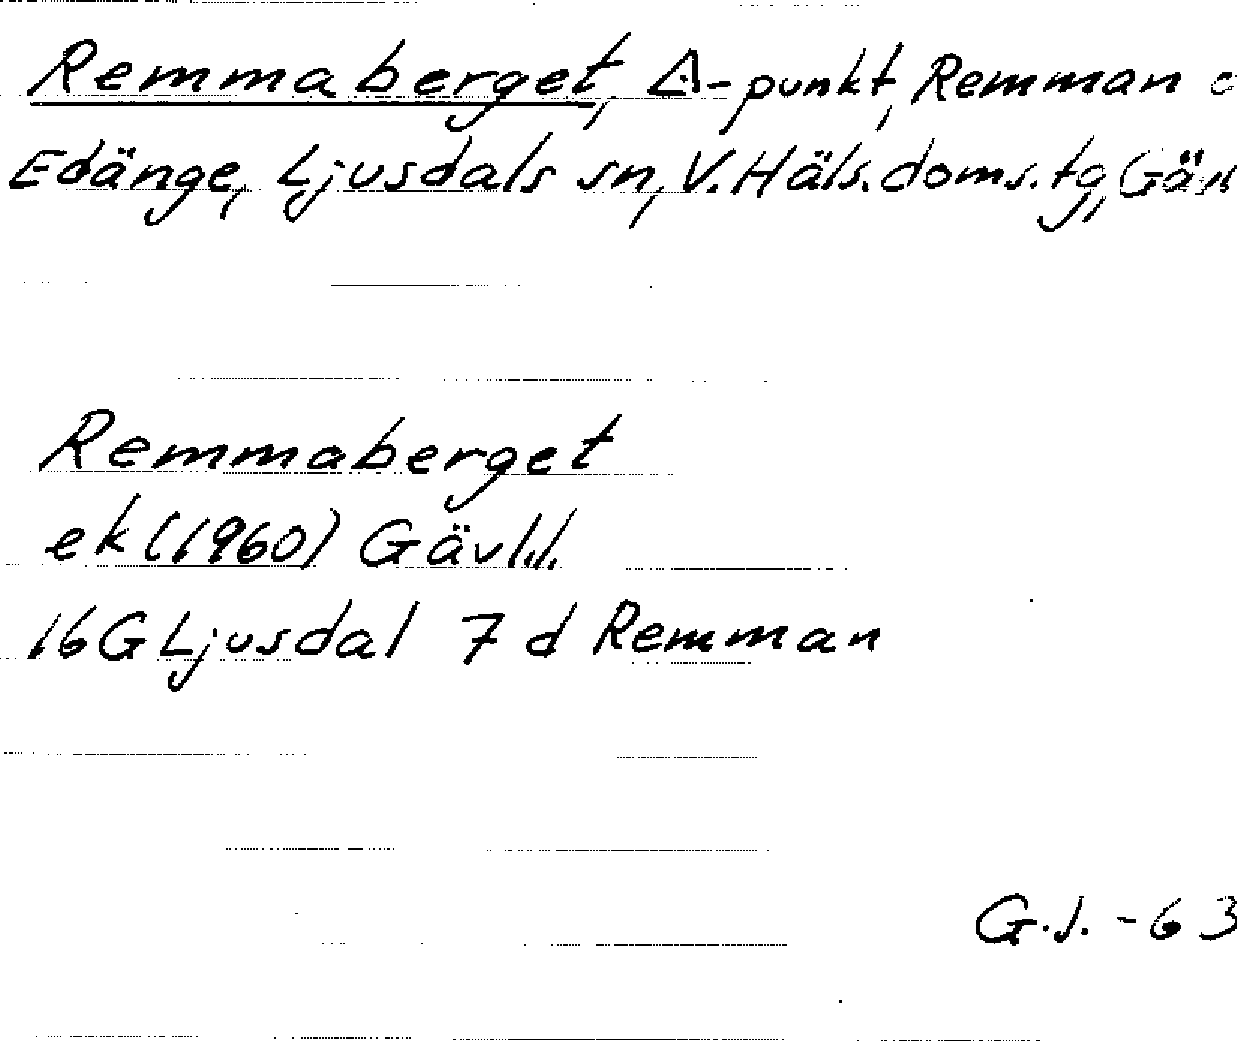 Remmaberget, Δ-punkt, Remman
Edänge, Ljusdals sn, V. Häls. doms. tg,
Remmaberget
ek (1960) Gävl.l.
16G Ljusdal 7 d Remman
G.J. -63